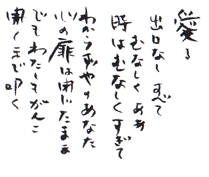 愛よ
出口なし すべて
むなしく ああ
時はむなしくすぎて
わからずやのあなた
心の扉は閉じたまま
でもわたしもがんこ
開くまで叩く